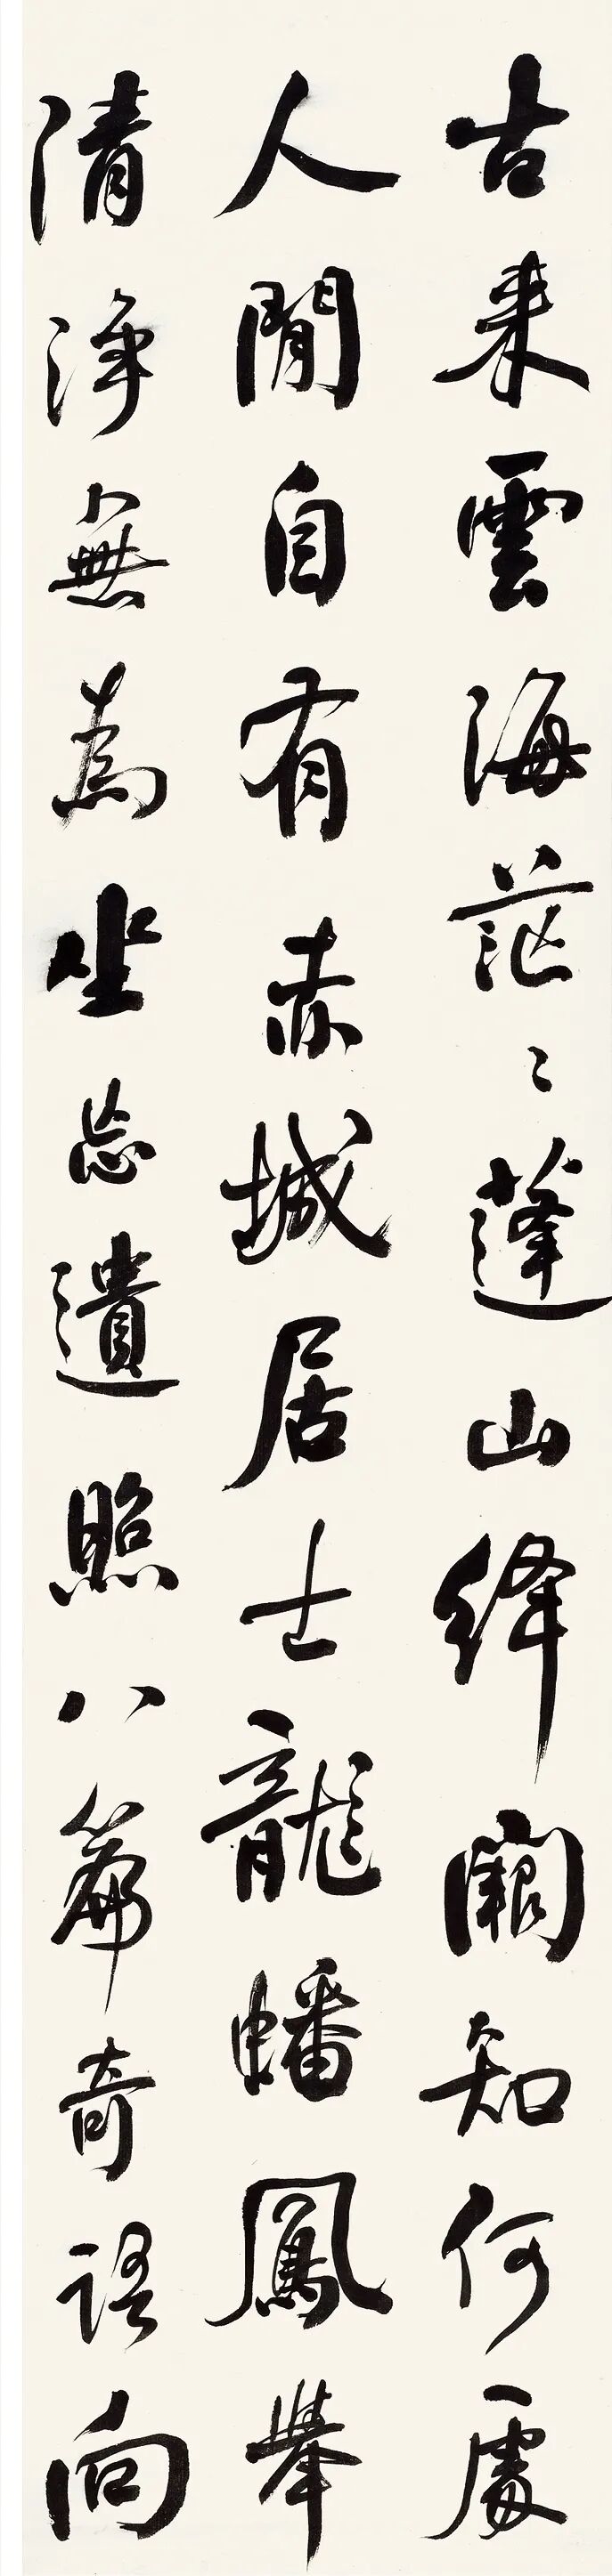 古来雲海茫々蓬山絳闕知何處
人間自有赤城居士龍蟠鳳舉
清淨無為坐忘遺照八篇奇語向